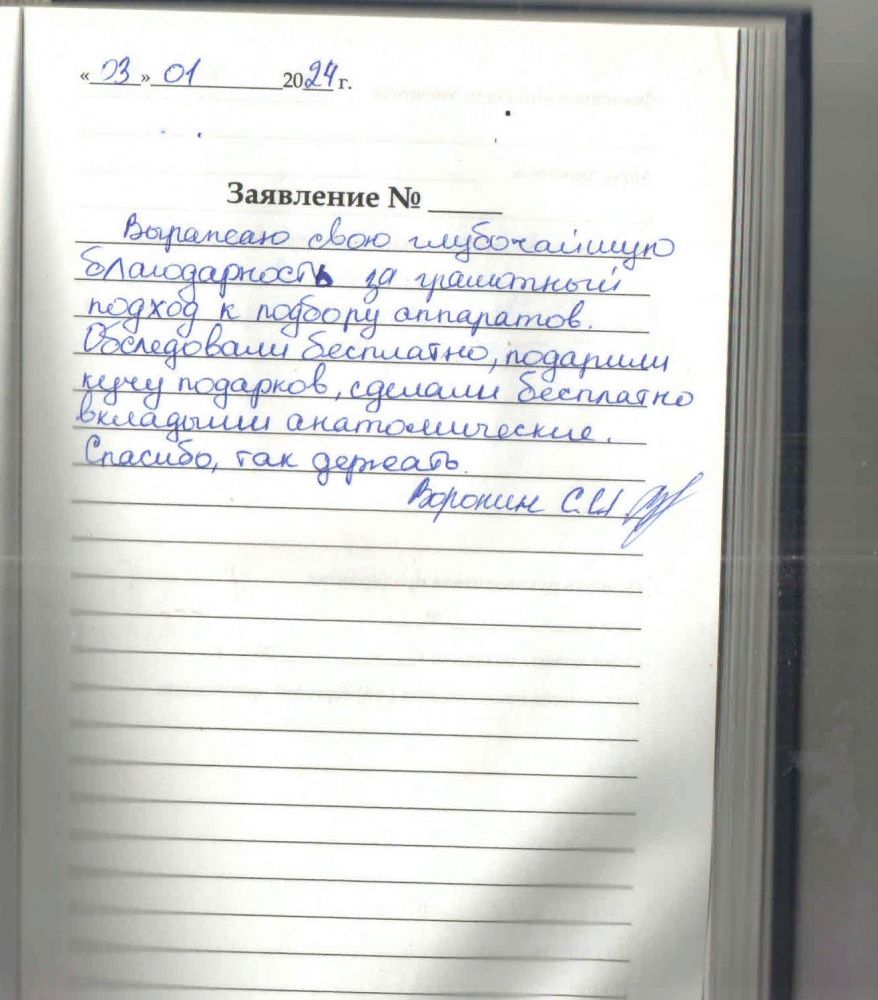 «03» 01 2024 г.
Заявление № ____
Выражаю свою глубочайшую
благодарность за грамотный
подход к подбору аппаратов.
Обследовали бесплатно, подарили
кучу подарков, сделали бесплатно
вкладыши анатомические.
Спасибо, так держать.
Воронин С.И.